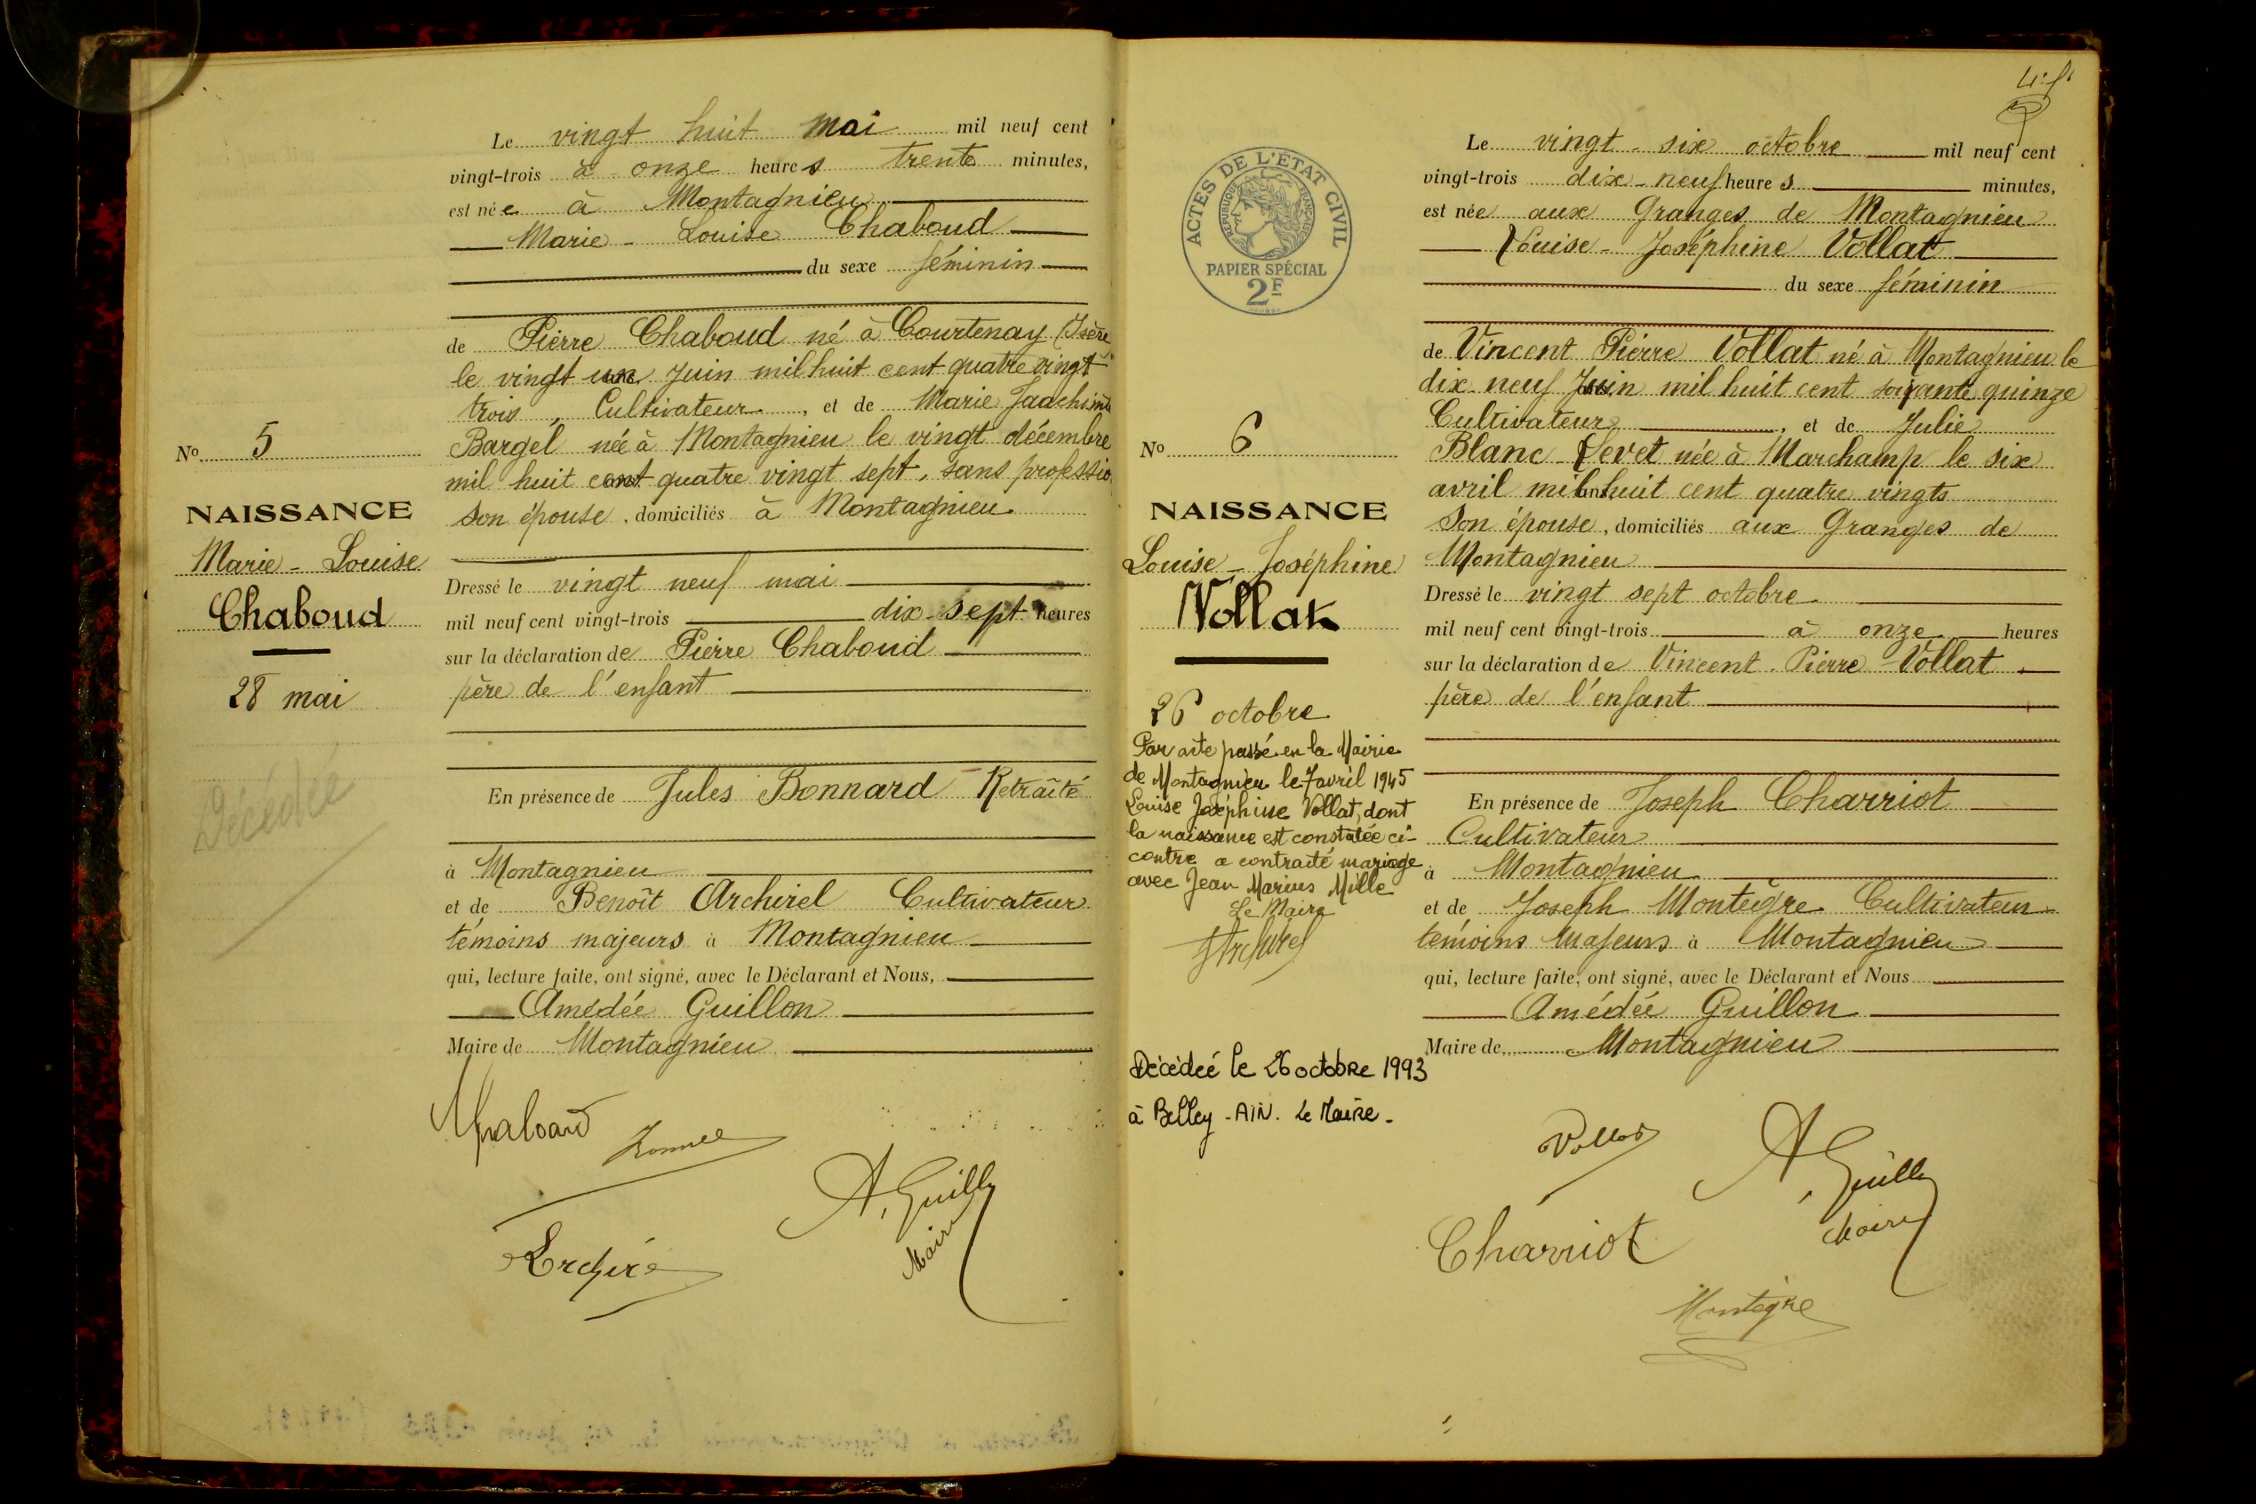 Le vingt huit mai mil neuf cent
vingt-trois à onze heures trente minutes,
est née à Montagnieu
Marie-Louise Chaboud
du sexe féminin
de Pierre Chaboud né à Courtenay (Isère
le vingt un juin mil huit cent quatre vingt
trois, Cultivateur, et de Marie
Bargel née à Montagnieu le vingt décembre
mil huit cent quatre vingt sept, sans professio
son épouse, domiciliés à Montagnieu
Dressé le vingt neuf mai
mil neuf cent vingt-trois dix-sept heures
sur la déclaration de Pierre Chaboud
père de l'enfant
En présence de Jules Bonnard Retraité
à Montagnieu
et de Benoît Archirel Cultivateur
témoins majeurs à Montagnieu
qui, lecture faite, ont signé, avec le Déclarant et Nous,
Amédée Guillon
Maire de Montagnieu
No 5
NAISSANCE
Marie-Louise
Chaboud
28 mai
Décédée
Chaboud
A. Guillon
Maire
ACTES DE L'ÉTAT CIVIL
RÉPUBLIQUE FRANÇAISE
PAPIER SPÉCIAL
2F
No 6
NAISSANCE
Louise-Joséphine
Vollat
26 octobre
Par acte passé en la Mairie
de Montagnieu le 7 avril 1945
Louise Joséphine Vollat, dont
la naissance est constatée ci-
contre a contracté mariage
avec Jean Marius Mille
Le Maire
Archirel
Décédée le 26 octobre 1993
à Belley - AIN. Le Maire.
Le vingt-six octobre mil neuf cent
vingt-trois dix-neuf heures minutes,
est née aux Granges de Montagnieu
Louise-Joséphine Vollat
du sexe féminin
de Vincent Pierre Vollat né à Montagnieu le
dix-neuf Juin mil huit cent soixante quinze
Cultivateur, et de Julie
Blanc Levet née à Marchamp le six
avril mil huit cent quatre vingts
son épouse, domiciliés aux Granges de
Montagnieu
Dressé le vingt sept octobre
mil neuf cent vingt-trois à onze heures
sur la déclaration de Vincent-Pierre Vollat
père de l'enfant
En présence de Joseph Charriot
Cultivateur
à Montagnieu
et de Joseph Montègre Cultivateur
témoins majeurs à Montagnieu
qui, lecture faite, ont signé, avec le Déclarant et Nous
Amédée Guillon
Maire de Montagnieu
Vollat
A. Guillon
Maire
Charriot
Montègre